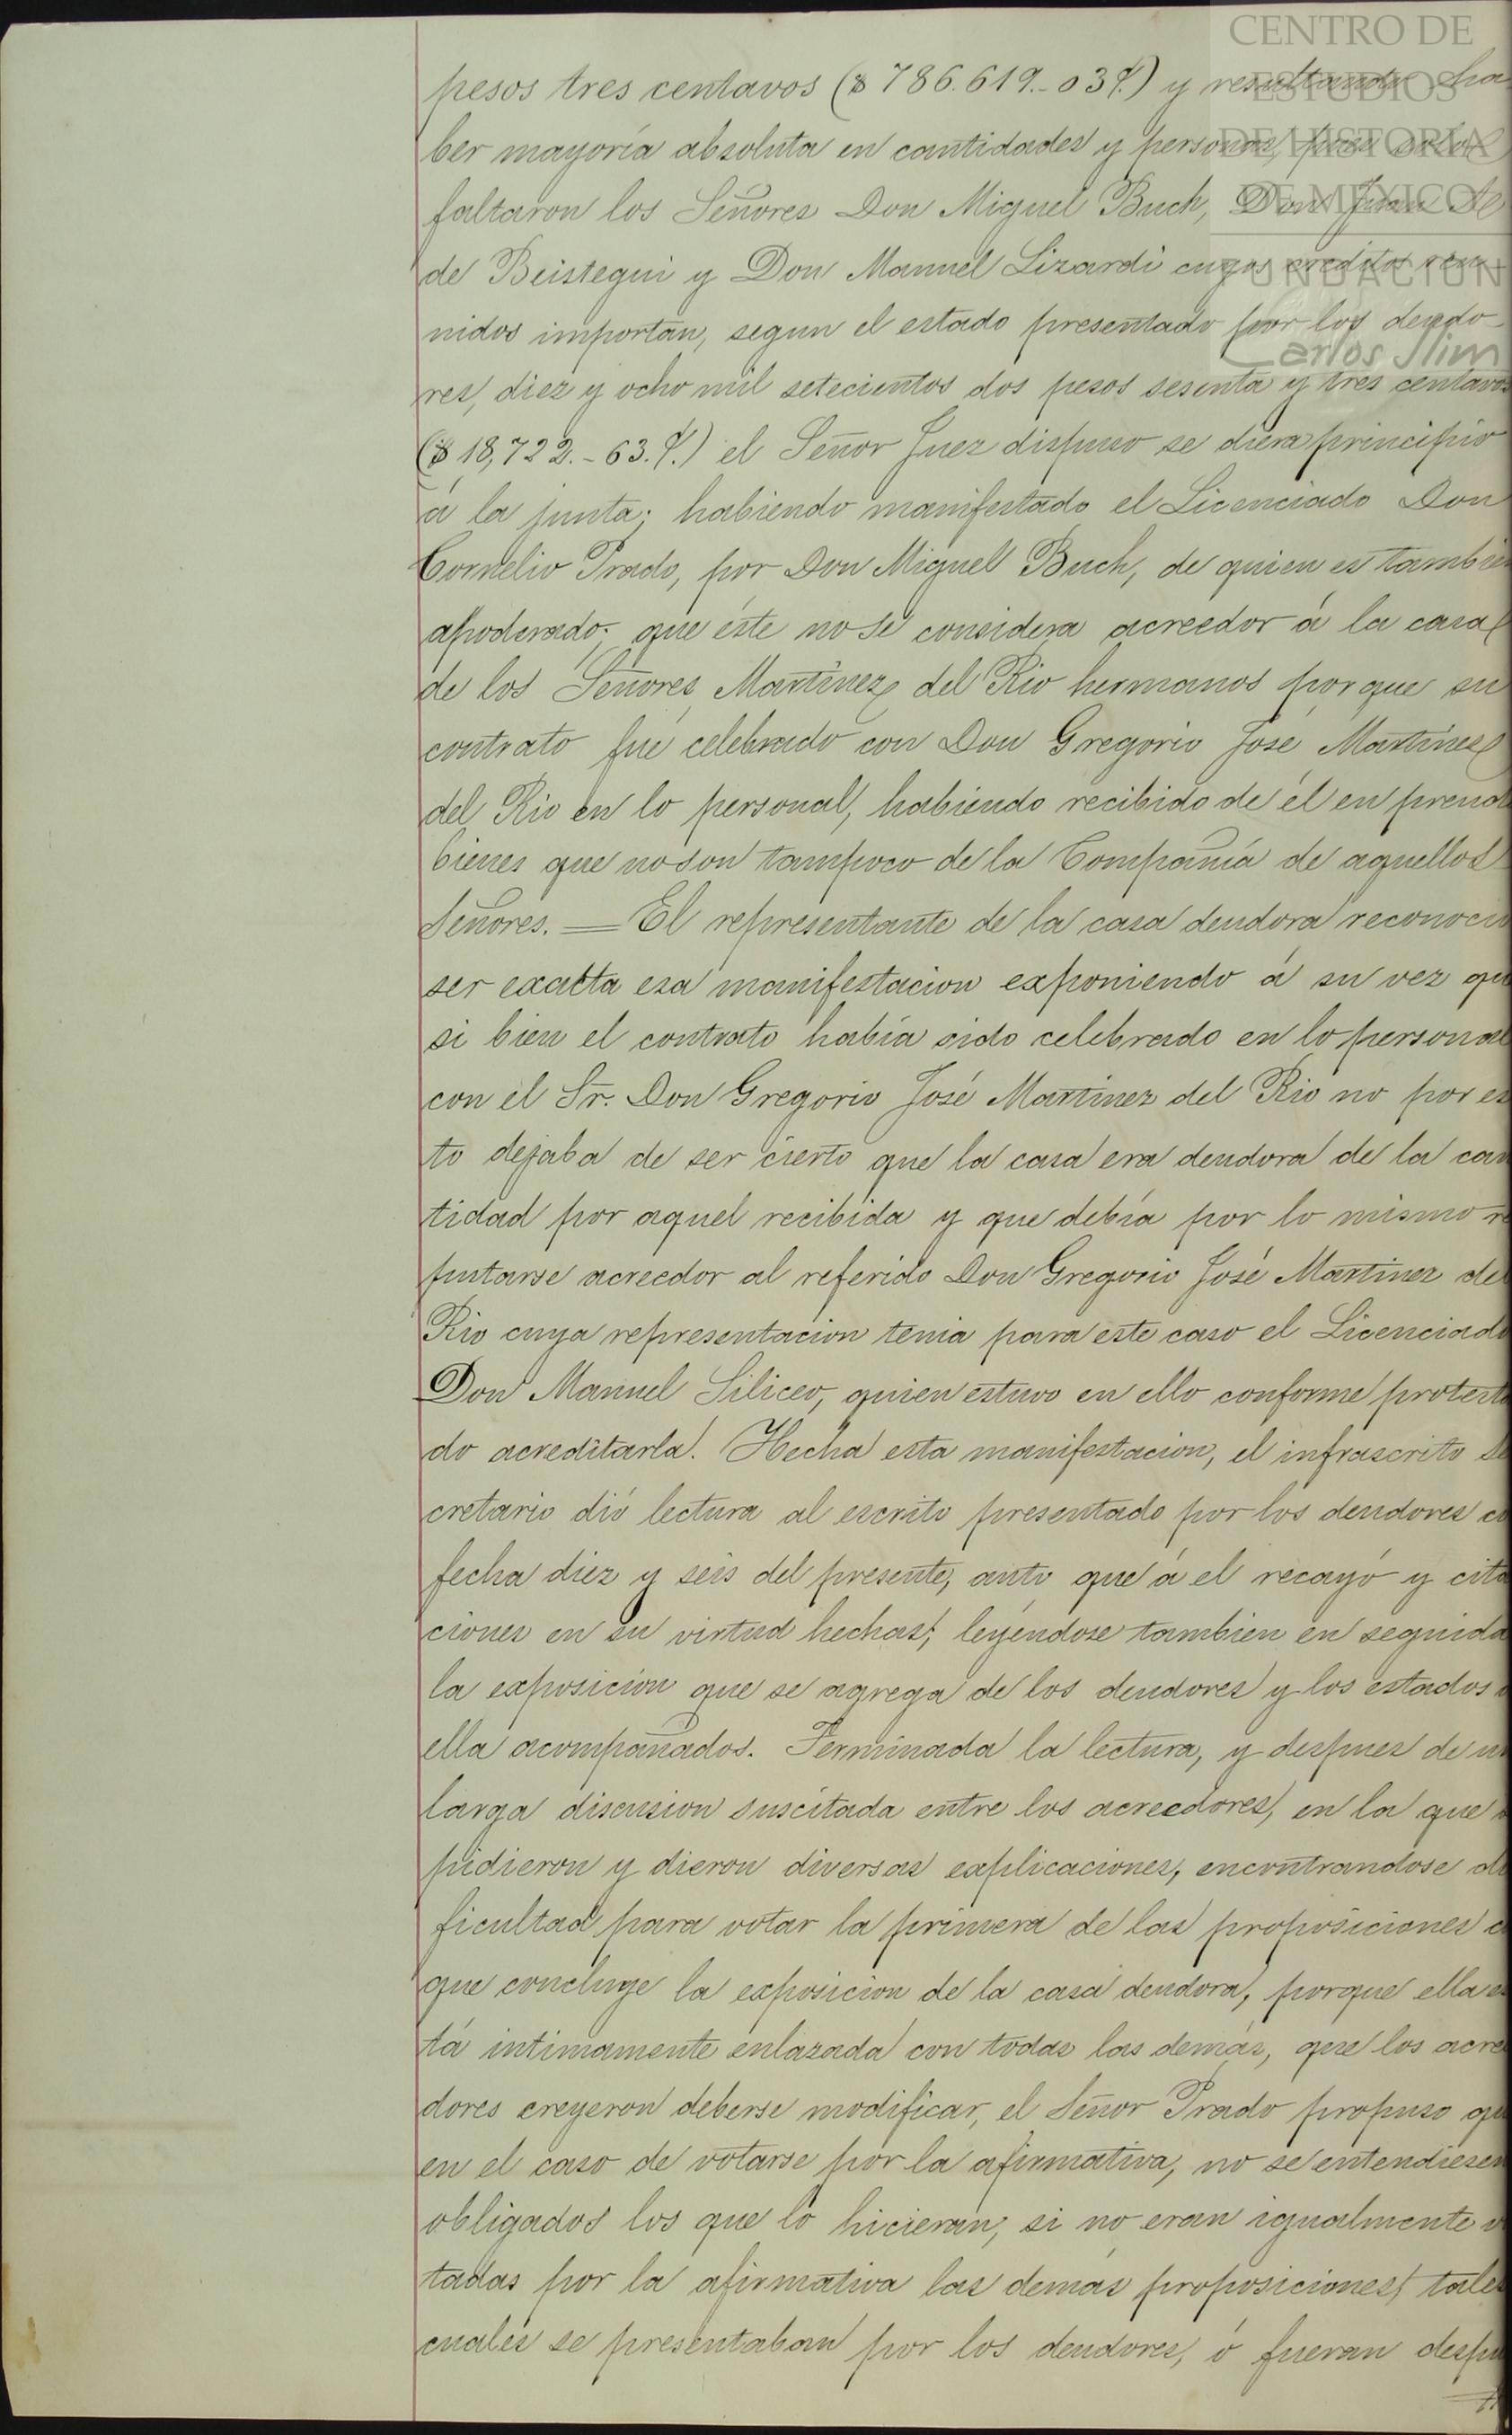 CENTRO DE
ESTUDIOS
DE HISTORIA
DE MEXICO
FUNDACION
Carlos Slim
pesos tres centavos ($ 786.619.-03 ¢.) y resultando ha
ber mayoría absoluta en cantidades y personas, pues solo
faltaron los Señores Don Miguel Buch, Don Juan A
de Beistegui y Don Manuel Lizardi cuyos creditos reu-
nidos importan, segun el estado presentado por los deudo-
res, diez y ocho mil setecientos dos pesos sesenta y tres centavos
($ 18,722.-63.¢.) el Señor Juez dispuso se diera principio
á la junta; habiendo manifestado el Licenciado Don
Cornelio Prado, por Don Miguel Buch, de quien es tambien
apoderado; que éste no se considera acreedor á la casa
de los Señores Martinez del Rio hermanos porque su
contrato fué celebrado con Don Gregorio José Martinez
del Rio en lo personal, habiendo recibido de él en prend
bienes que no son tampoco de la Compañía de aquellos
Señores. — El representante de la casa deudora reconoció
ser exacta esa manifestacion exponiendo á su vez qu
si bien el contrato había sido celebrado en lo personal
con el Sr. Don Gregorio José Martinez del Rio no por es
to dejaba de ser cierto que la casa era deudora de la can
tidad por aquel recibida y que debía por lo mismo re
putarse acreedor al referido Don Gregorio José Martinez del
Rio cuya representacion tenia para este caso el Licenciado
Don Manuel Siliceo, quien estuvo en ello conforme protesta
do acreditarla. Hecha esta manifestacion, el infrascrito Se
cretario dió lectura al escrito presentado por los deudores co
fecha diez y seis del presente, auto que á el recayó y cita
ciones en su virtud hechas; leyéndose tambien en seguida
la exposición que se agrega de los deudores y los estados á
ella acompañados. Terminada la lectura, y despues de un
larga discusion suscitada entre los acreedores, en la que
pidieron y dieron diversas explicaciones, encontrandose di
ficultad para votar la primera de las proposiciones c
que concluye la exposicion de la casa deudora, porque ella es
tá intimamente enlazada con todas las demás, que los acre
dores creyeron deberse modificar, el Señor Prado propuso qu
en el caso de votarse por la afirmativa, no se entendiesen
obligados los que lo hicieran, si no eran igualmente vo
tadas por la afirmativa las demás proposiciones, tales
cuales se presentaban por los deudores, ó fueran despu